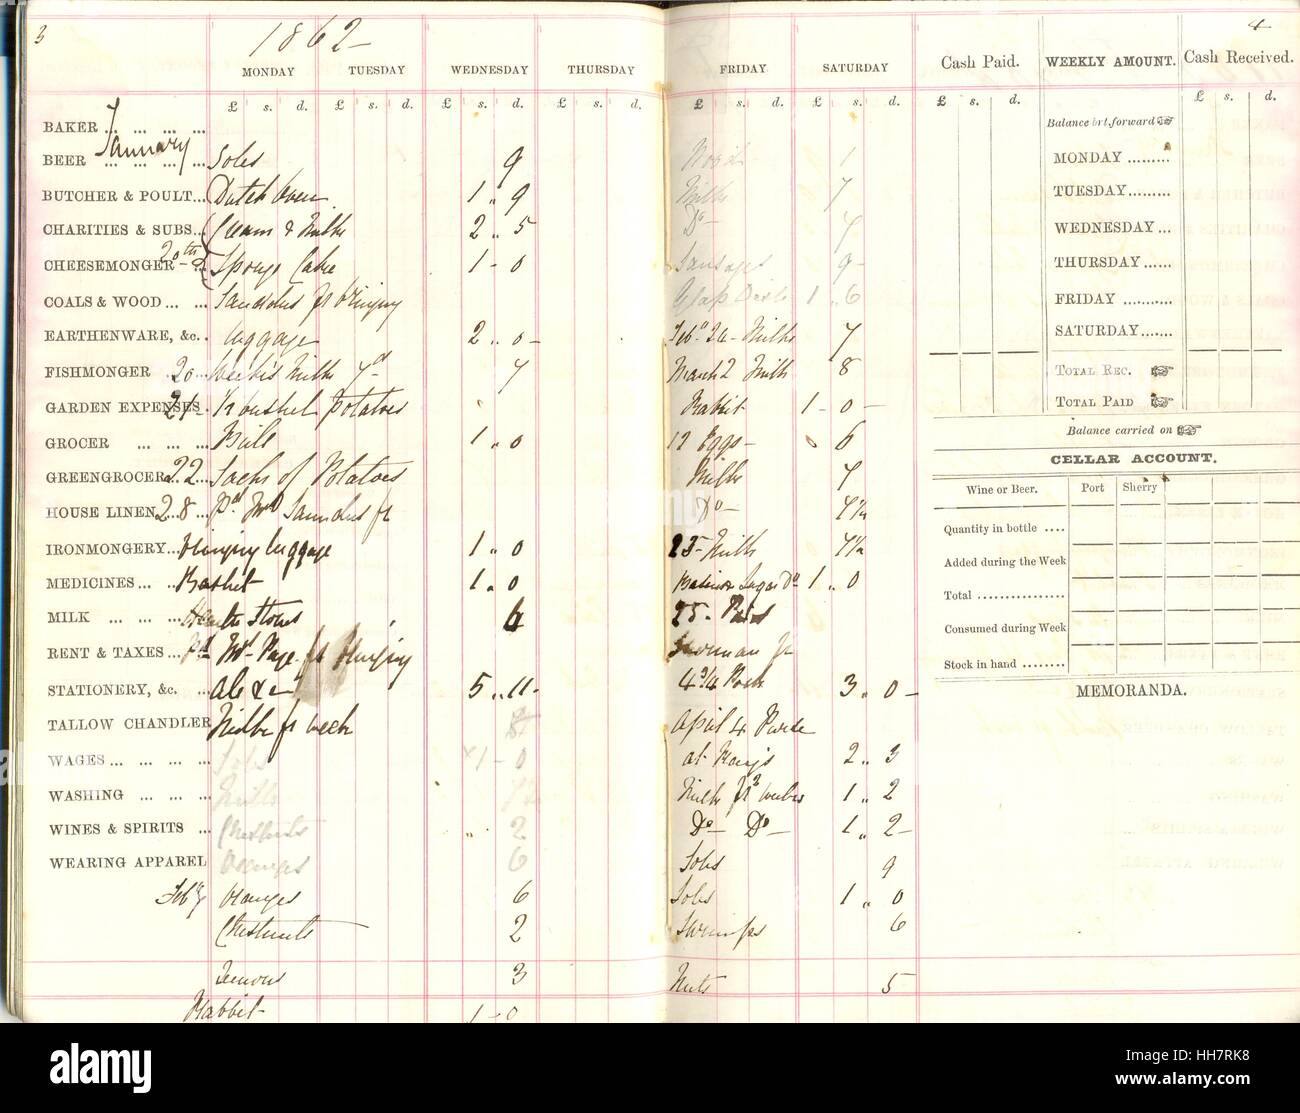 3
1862
MONDAY TUESDAY WEDNESDAY THURSDAY
£ s. d. £ s. d. £ s. d. £ s. d.
January
BAKER ... ... ... ...
BEER ... ... ... ... Soles 9
BUTCHER & POULT... Dutch Oven 1 „ 9
CHARITIES & SUBS... Cream & Milk 2 „ 5
CHEESEMONGER 20th ... Sponge Cake 1 - 0
COALS & WOOD ... ... Saunders fr bringing
EARTHENWARE, &c. . luggage 2 „ 0 -
FISHMONGER 20 ... Weeks Milk 7d 7
GARDEN EXPENSES 21 . Potatoes
GROCER ... ... ... 1 „ 0
GREENGROCER 22 ... Sacks of Potatoes
HOUSE LINEN 28 ... Pd Saunders fr
IRONMONGERY ... bringing luggage 1 „ 0
MEDICINES ... ... Basket 1 „ 0
MILK ... ... ... Hearth Stones 6
RENT & TAXES ... Pd Mr Page fr bringing
STATIONERY, &c. ... 5 „ 11 -
TALLOW CHANDLER Milk fr week
WAGES ... ... ... ... Soles 1 - 0
WASHING ... ... ... Milk
WINES & SPIRITS ... Chestnuts 2
WEARING APPAREL Oranges 6
Feby Oranges 6
Chestnuts 2
Lemons 3
Rabbit 1 - 0
4
FRIDAY SATURDAY
£ s. d. £ s. d.
1
Milk 7
Do - 7
Sausages 9 -
1 „ 6
Feb 24 - Milk 7
March 2 Milk 8
Rabbit 1 - 0 -
12 Eggs - 6
Milk 7
Do - 7½
25 - Milk 7½
Sugar Do 1 „ 0
25 -
fr
4¾ Pork 3 „ 0 -
April 4
at 2 „ 3
Milk fr 2 weeks 1 „ 2
Do - Do - 1 „ 2 -
Soles 9
Soles 1 „ 0
Shrimps 6
Nuts 5
Cash Paid. WEEKLY AMOUNT. Cash Received.
£ s. d. £ s. d.
Balance brt. forward ☞
MONDAY .........
TUESDAY.........
WEDNESDAY ...
THURSDAY ......
FRIDAY ...........
SATURDAY.......
TOTAL REC. ☞
TOTAL PAID ☞
Balance carried on ☞
CELLAR ACCOUNT.
Wine or Beer. Port Sherry
Quantity in bottle ....
Added during the Week
Total ................
Consumed during Week
Stock in hand ........
MEMORANDA.
alamy
a
Image ID: HH7RK8
www.alamy.com